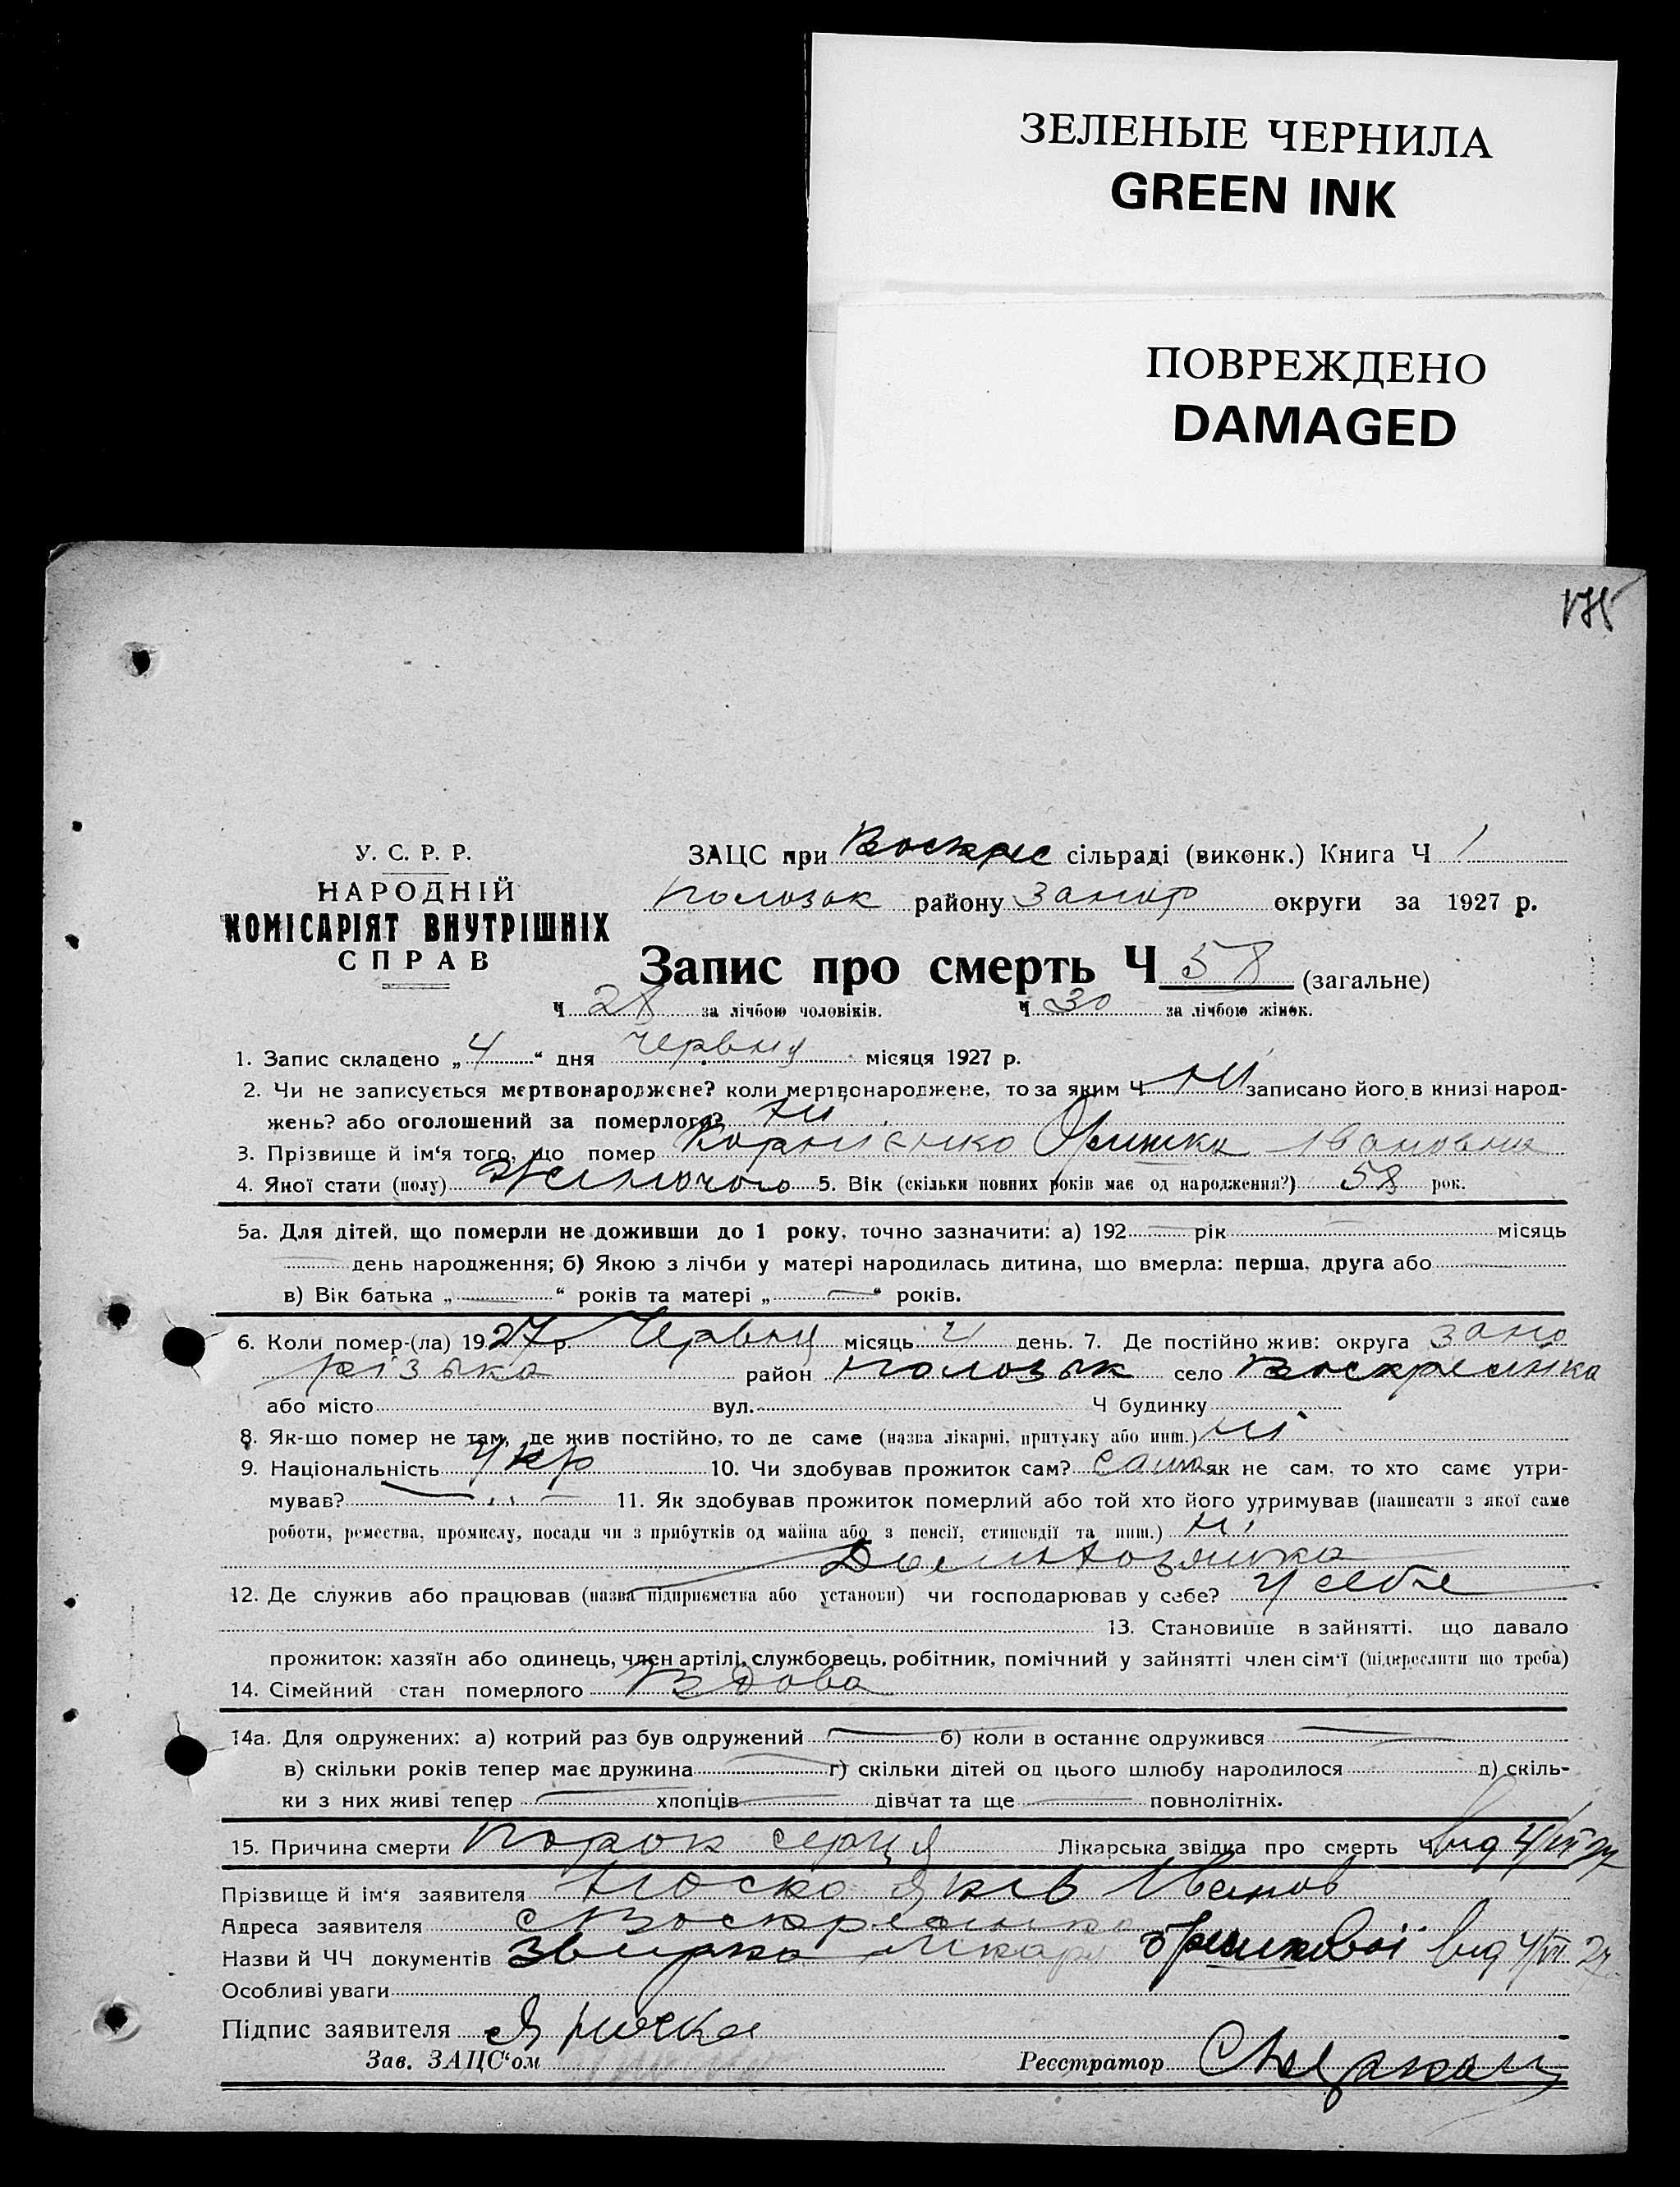 ЗЕЛЕНЫЕ ЧЕРНИЛА
GREEN INK
ПОВРЕЖДЕНО
DAMAGED
175
У. С. Р. Р.
НАРОДНІЙ
КОМІСАРІЯТ ВНУТРІШНІХ
СПРАВ
ЗАЦС при Воскрес сільраді (виконк.) Книга Ч 1
Пологзьк району Запор округи за 1927 р.
Запис про смерть Ч 58 (загальне)
Ч 28 за лічбою чоловіків. Ч 30 за лічбою жінок.
1. Запис складено „4“ дня Червня місяця 1927 р.
2. Чи не записується мертвонароджене? коли мертвонароджене, то за яким Ч ні записано його в книзі народ-
жень? або оголошений за померлого? ні
3. Прізвище й ім‘я того, що помер Корнієнко Оришка Івановна
4. Якої стати (полу) Жіночого 5. Вік (скільки повних років має од народження?) 58 рок.
5а. Для дітей, що померли не доживши до 1 року, точно зазначити: а) 192 — рік — місяць
— день народження; б) Якою з лічби у матері народилась дитина, що вмерла: перша, друга або —
в) Вік батька „—“ років та матері „—“ років.
6. Коли помер-(ла) 1927 р. Червня місяць 4 день. 7. Де постійно жив: округа Запо
різька район Пологзьк село Воскресінка
або місто вул. Ч будинку
8. Як-що помер не там, де жив постійно, то де саме (назва лікарні, притулку або инш.) ні
9. Національність Укр 10. Чи здобував прожиток сам? сама як не сам, то хто саме утри-
мував? — 11. Як здобував прожиток померлий або той хто його утримував (написати з якої саме
роботи, ремества, промислу, посади чи з прибутків од майна або з пенсії, стипендії та инш.) ні
Домохозяйка
12. Де служив або працював (назва підприємства або установи) чи господарював у себе? У себе
13. Становище в зайнятті, що давало
прожиток: хазяїн або одинець, член артілі, службовець, робітник, помічний у зайнятті член сім‘ї (підкреслити що треба)
14. Сімейний стан померлого Вдова
14а. Для одружених: а) котрий раз був одружений — б) коли в останнє одружився —
в) скільки років тепер має дружина — г) скільки дітей од цього шлюбу народилося д) скіль-
ки з них живі тепер — хлопців — дівчат та ще — повнолітніх.
15. Причина смерти Порок серця Лікарська звідка про смерть Ч від 4/VI 27
Прізвище й ім‘я заявителя Носко Яків Іванов
Адреса заявителя с Воскресінка
Назви й ЧЧ документів лікаря від 4/VI 27
Особливі уваги
Підпис заявителя Я Носко
Зав. ЗАЦС‘ом Реєстратор